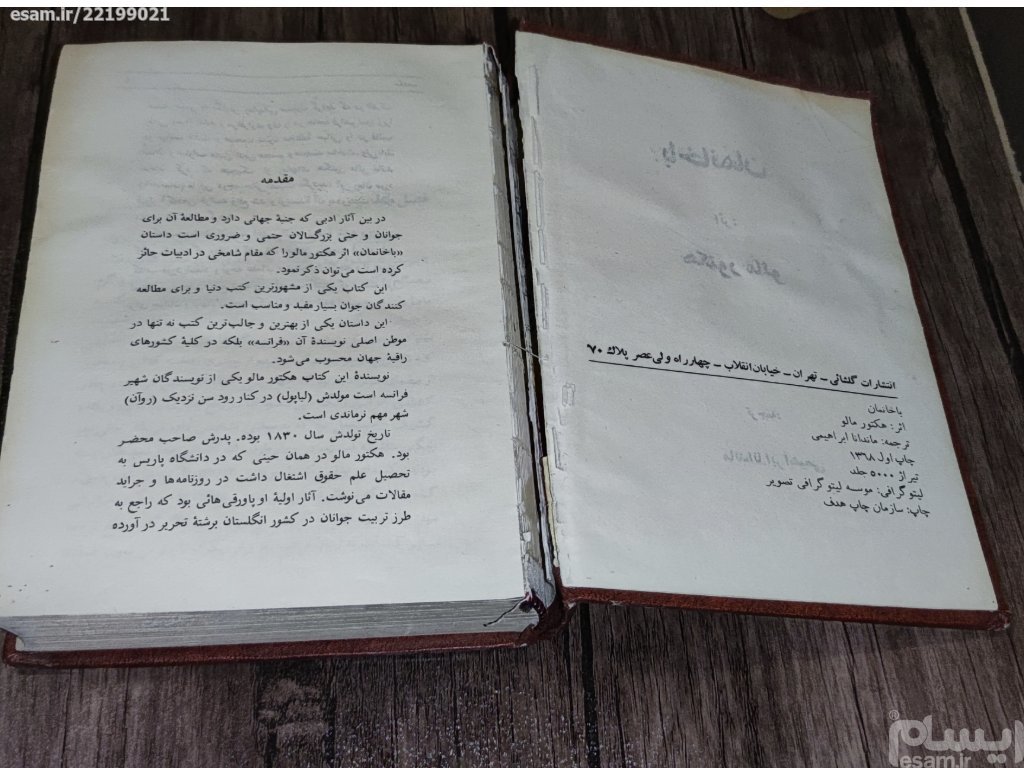 esam.ir/22199021
انتشارات گلشائی – تهران – خیابان انقلاب – چهارراه ولی عصر پلاک ۷۰
باخانمان
اثر: هکتور مالو
ترجمه: ماندانا ابراهیمی
چاپ اول ۱۳۶۸
تیراژ ۵۰۰۰ جلد
لیتوگرافی: موسسه لیتوگرافی تصویر
چاپ: سازمان چاپ هدف
مقدمه
در بین آثار ادبی که جنبهٔ جهانی دارد و مطالعهٔ آن برای
جوانان و حتی بزرگسالان حتمی و ضروری است داستان
«باخانمان» اثر هکتور مالو را که مقام شامخی در ادبیات حائز
کرده است می‌توان ذکر نمود.
این کتاب یکی از مشهورترین کتب دنیا و برای مطالعه
کنندگان جوان بسیار مفید و مناسب است.
این داستان یکی از بهترین و جالب‌ترین کتب نه تنها در
موطن اصلی نویسندهٔ آن «فرانسه» بلکه در کلیهٔ کشورهای
راقیهٔ جهان محسوب می‌شود.
نویسندهٔ این کتاب هکتور مالو یکی از نویسندگان شهیر
فرانسه است مولدش (لباپول) در کنار رود سن نزدیک (روآن)
شهر مهم نرماندی است.
تاریخ تولدش سال ۱۸۳۰ بوده. پدرش صاحب محضر
بود. هکتور مالو در همان حینی که در دانشگاه پاریس به
تحصیل علم حقوق اشتغال داشت در روزنامه‌ها و جراید
مقالات می‌نوشت. آثار اولیهٔ او پاورقی‌هائی بود که راجع به
طرز تربیت جوانان در کشور انگلستان برشتهٔ تحریر در آورده
ایسام
esam.ir